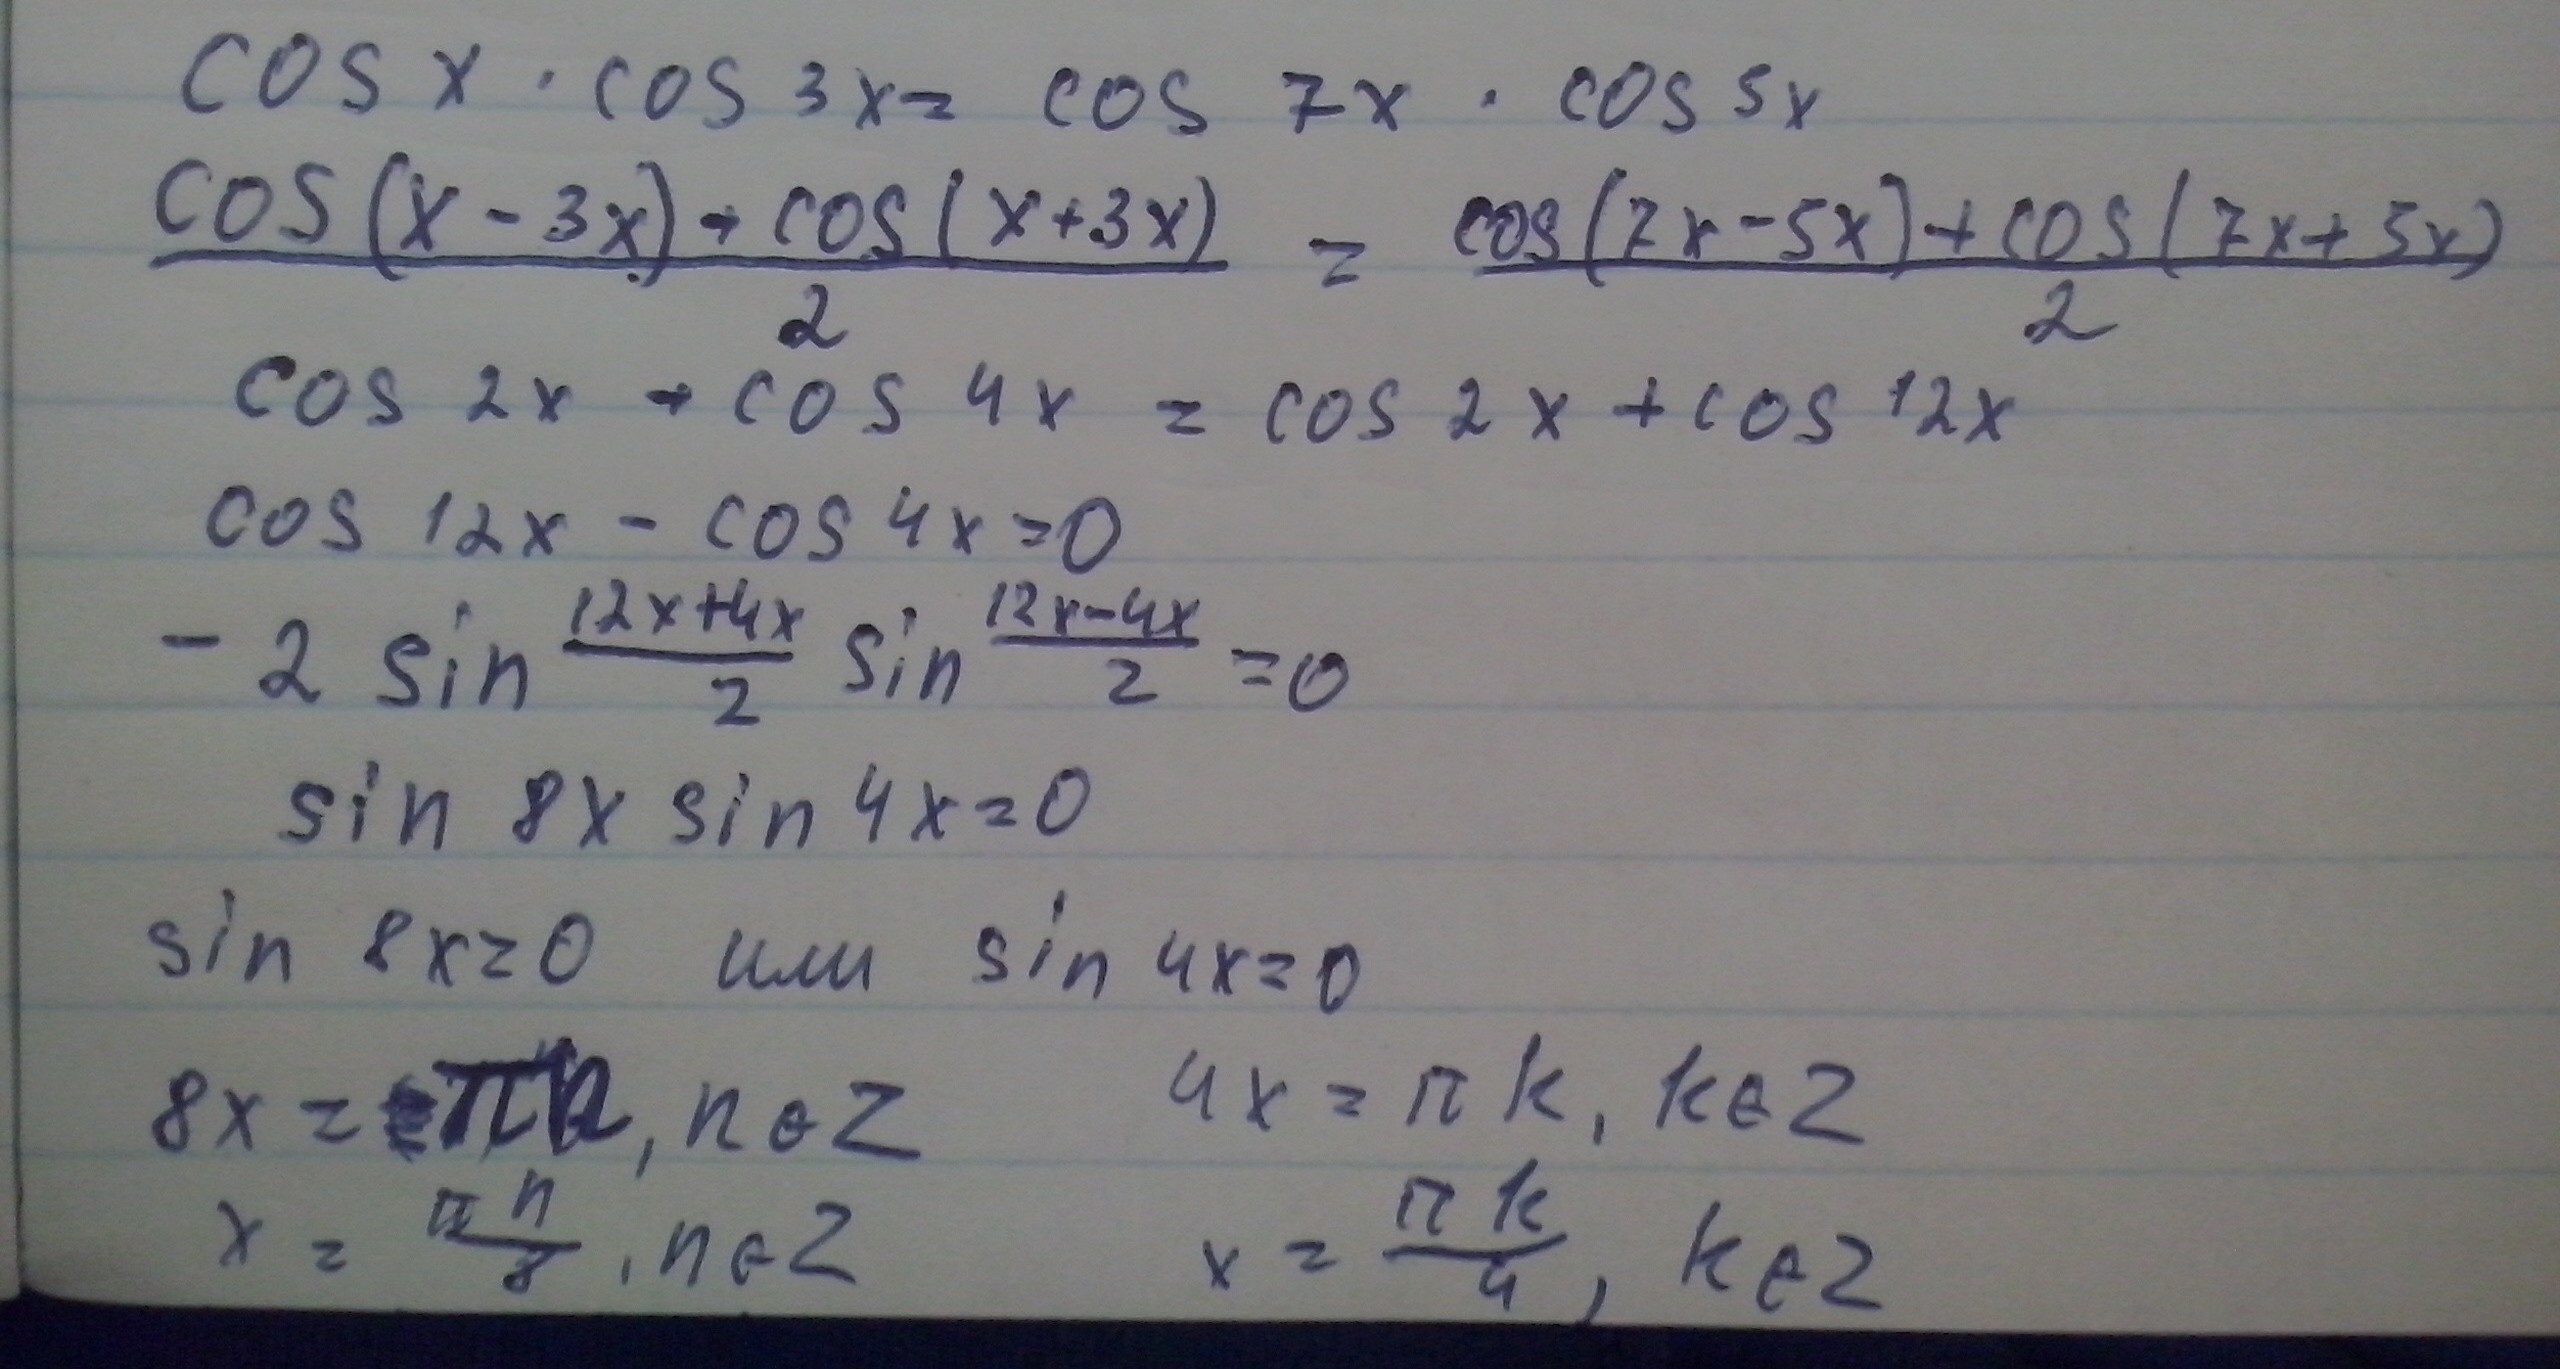 cos x · cos 3x = cos 7x · cos 5x
cos(x - 3x) + cos(x+3x) / 2 = cos(7x-5x) + cos(7x+5x) / 2
cos 2x + cos 4x = cos 2x + cos 12x
cos 12x - cos 4x = 0
- 2 sin (12x+4x)/2 sin (12x-4x)/2 = 0
sin 8x sin 4x = 0
sin 8x = 0 или sin 4x = 0
8x = πn, n ∈ Z 4x = πk, k ∈ Z
x = πn/8, n ∈ Z x = πk/4, k ∈ Z